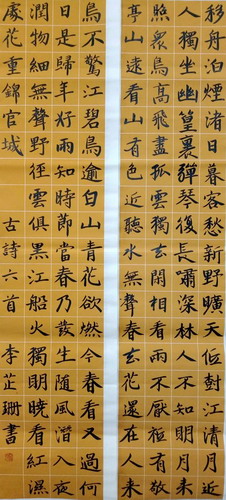 移舟泊煙渚日暮客愁新野曠天低樹江清月近
人獨坐幽篁裏彈琴復長嘯深林人不知明月來
照衆鳥高飛盡孤雲獨去閑相看兩不厭祗有敬
亭山遠看山有色近聽水無聲春去花還在人來
鳥不驚江碧鳥逾白山青花欲燃今春看又過何
日是歸年好雨知時節當春乃發生隨風潛入夜
潤物細無聲野徑雲俱黑江船火獨明曉看紅濕
處花重錦官城 古詩六首 李芷珊書